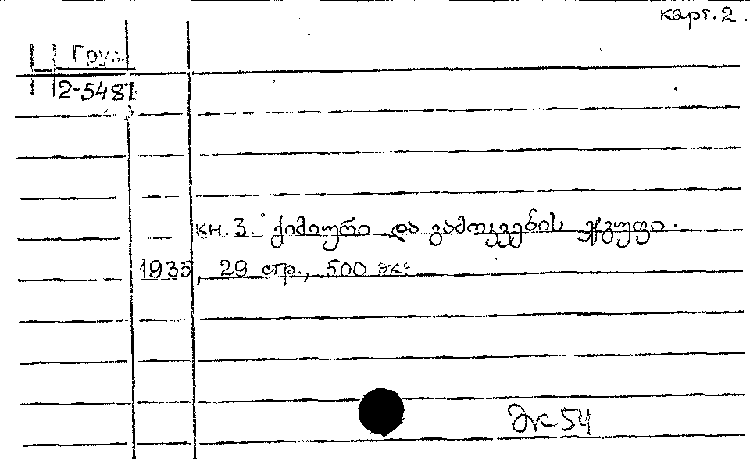 карт. 2.
Груз
2-5481
кн. 3. ქიმიური და გამოკვების ჯგუფი.
1935, 29 стр., 500 экз.
Эк 54